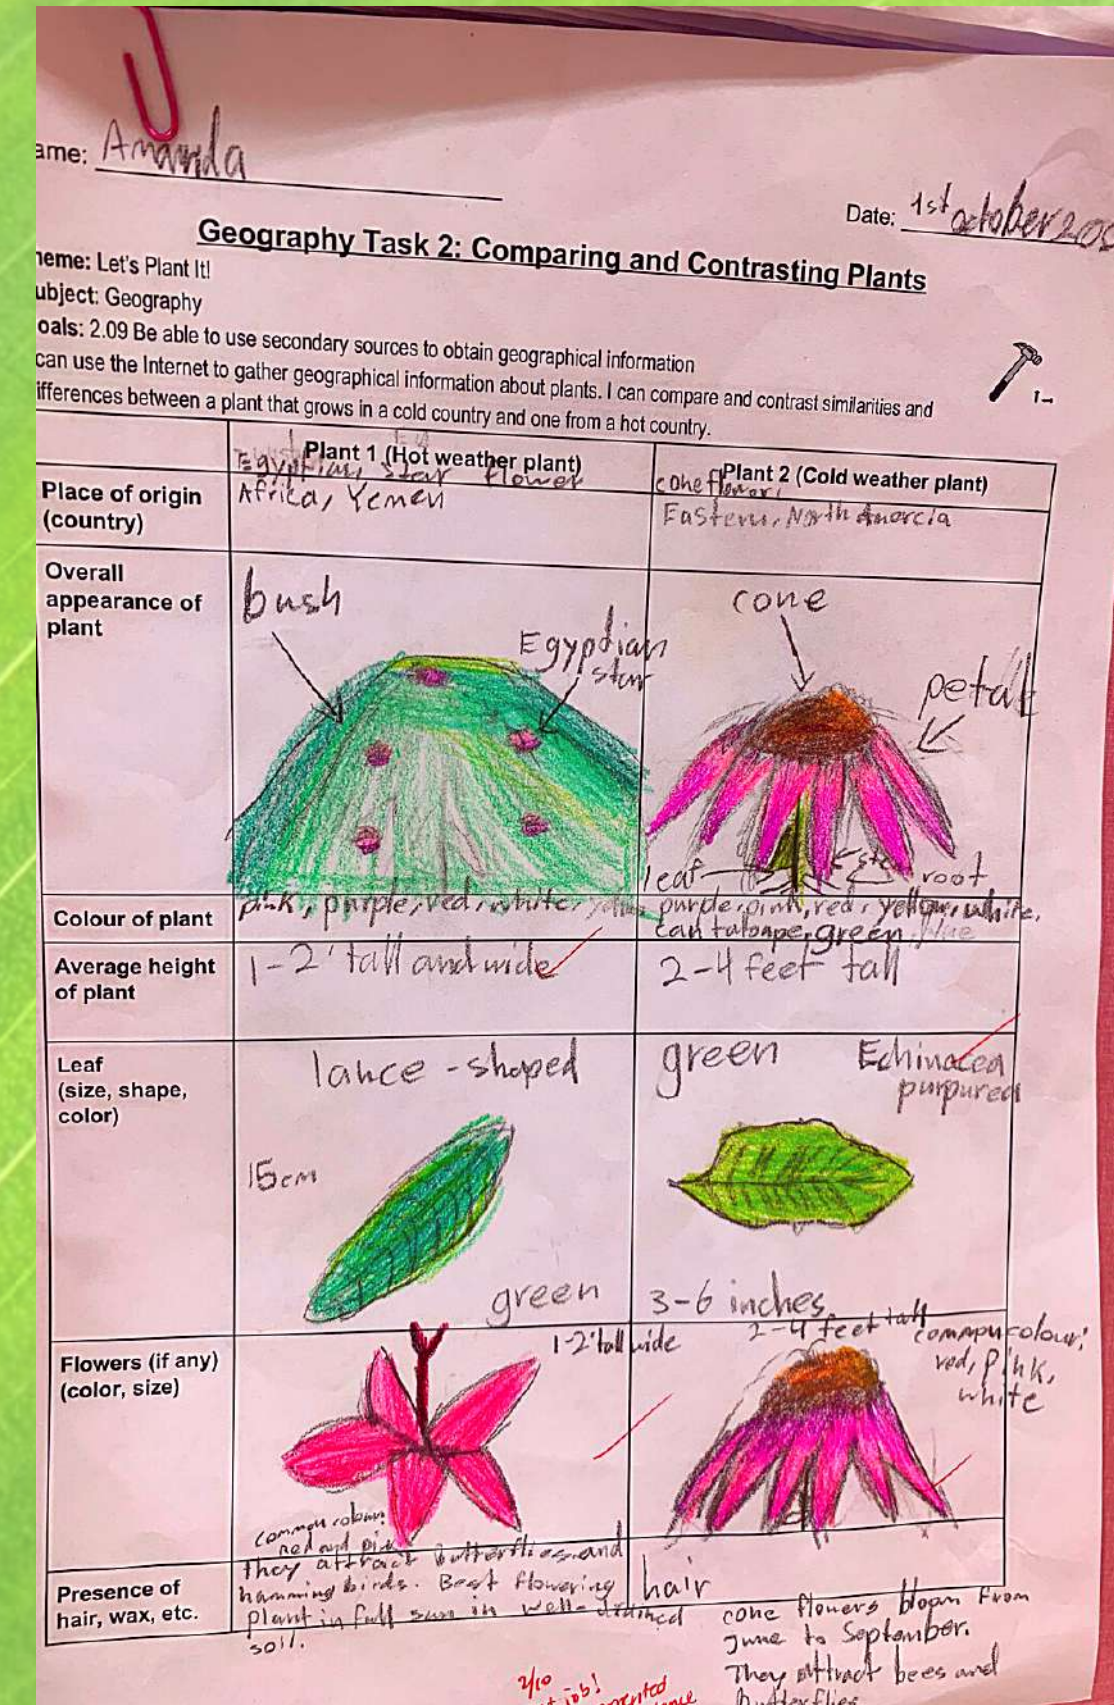 ame: Amanda
Date: 1st october 20
Geography Task 2: Comparing and Contrasting Plants
heme: Let's Plant It!
ubject: Geography
oals: 2.09 Be able to use secondary sources to obtain geographical information
can use the Internet to gather geographical information about plants. I can compare and contrast similarities and
ifferences between a plant that grows in a cold country and one from a hot country.
Plant 1 (Hot weather plant)
Egyptian, star flower
Plant 2 (Cold weather plant)
coneflower,
Place of origin
(country)
Africa, Yemen
Eastern, North Amercia
Overall
appearance of
plant
bush
Egyptian
star
cone
petal
leaf
root
Colour of plant
pink, purple, red, white,
purple, pink, red, yellow, white,
green
Average height
of plant
1-2' tall and wide
2-4 feet tall
Leaf
(size, shape,
color)
lance-shaped
15cm
green
green
Echinacea
purpurea
3-6 inches
Flowers (if any)
(color, size)
1-2' tall wide
common colour:
red and pink
2-4 feet tall
colour:
red, pink,
white
Presence of
hair, wax, etc.
they attract butterflies and
hamming birds. Best flowering
plant in full sun in well-drained
soil.
hair
cone flowers bloom from
june to September.
They attract bees and
butterflies
2/10
job!